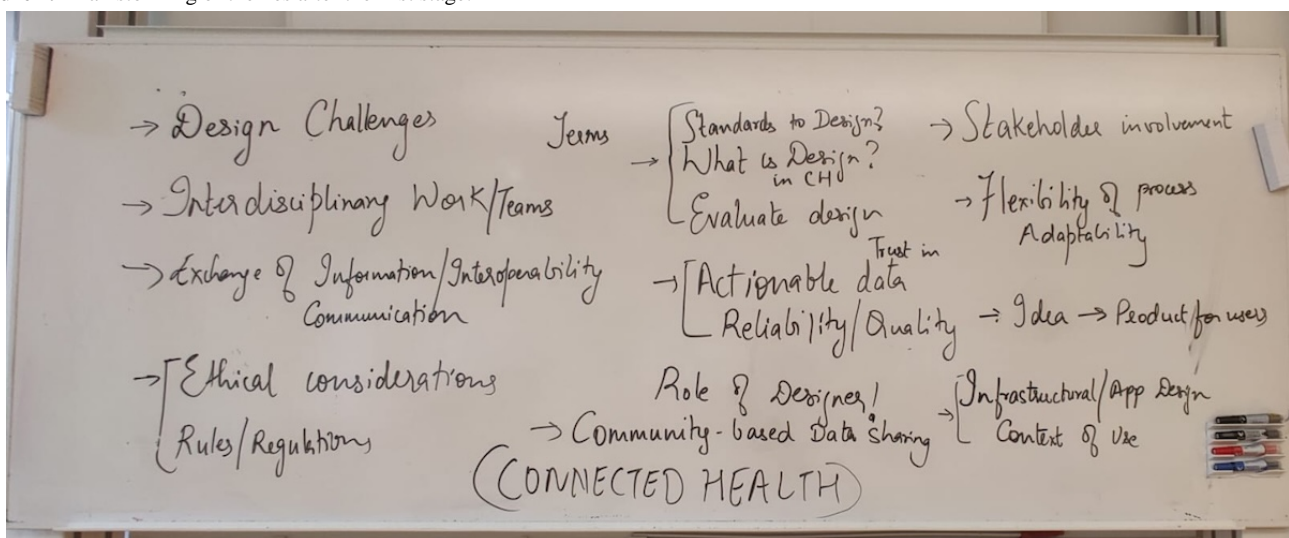 → Design Challenges
→ Interdisciplinary Work/Teams
→ Exchange of Information/Interoperability
Communication
→ Ethical considerations
Rules/Regulations
Teams
→ Standards to Design?
What is Design?
in CH
Evaluate design
Trust in
→ Actionable data
Reliability/Quality
Role of Designer/
→ Community-based Data sharing
→ Stakeholder involvement
→ Flexibility of process
Adaptability
→ Idea → Product/for users
→ Infrastructural/App Design
Context of Use
(CONNECTED HEALTH)